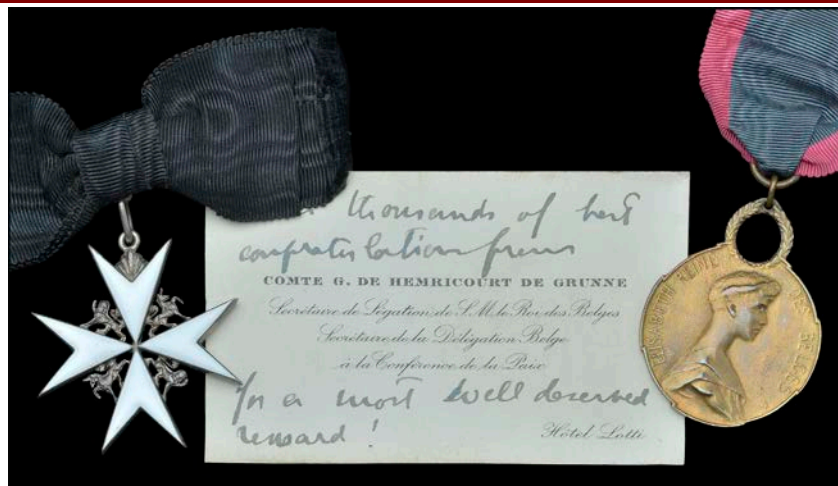 thousands of best
congratulations from
COMTE G. DE HEMRICOURT DE GRUNNE
Secrétaire de Légation de S. M. le Roi des Belges
Secrétaire de la Délégation Belge
à la Conférence de la Paix
for a most well deserved
reward !
Hôtel Lotti
ELISABETH REINE DES BELGES